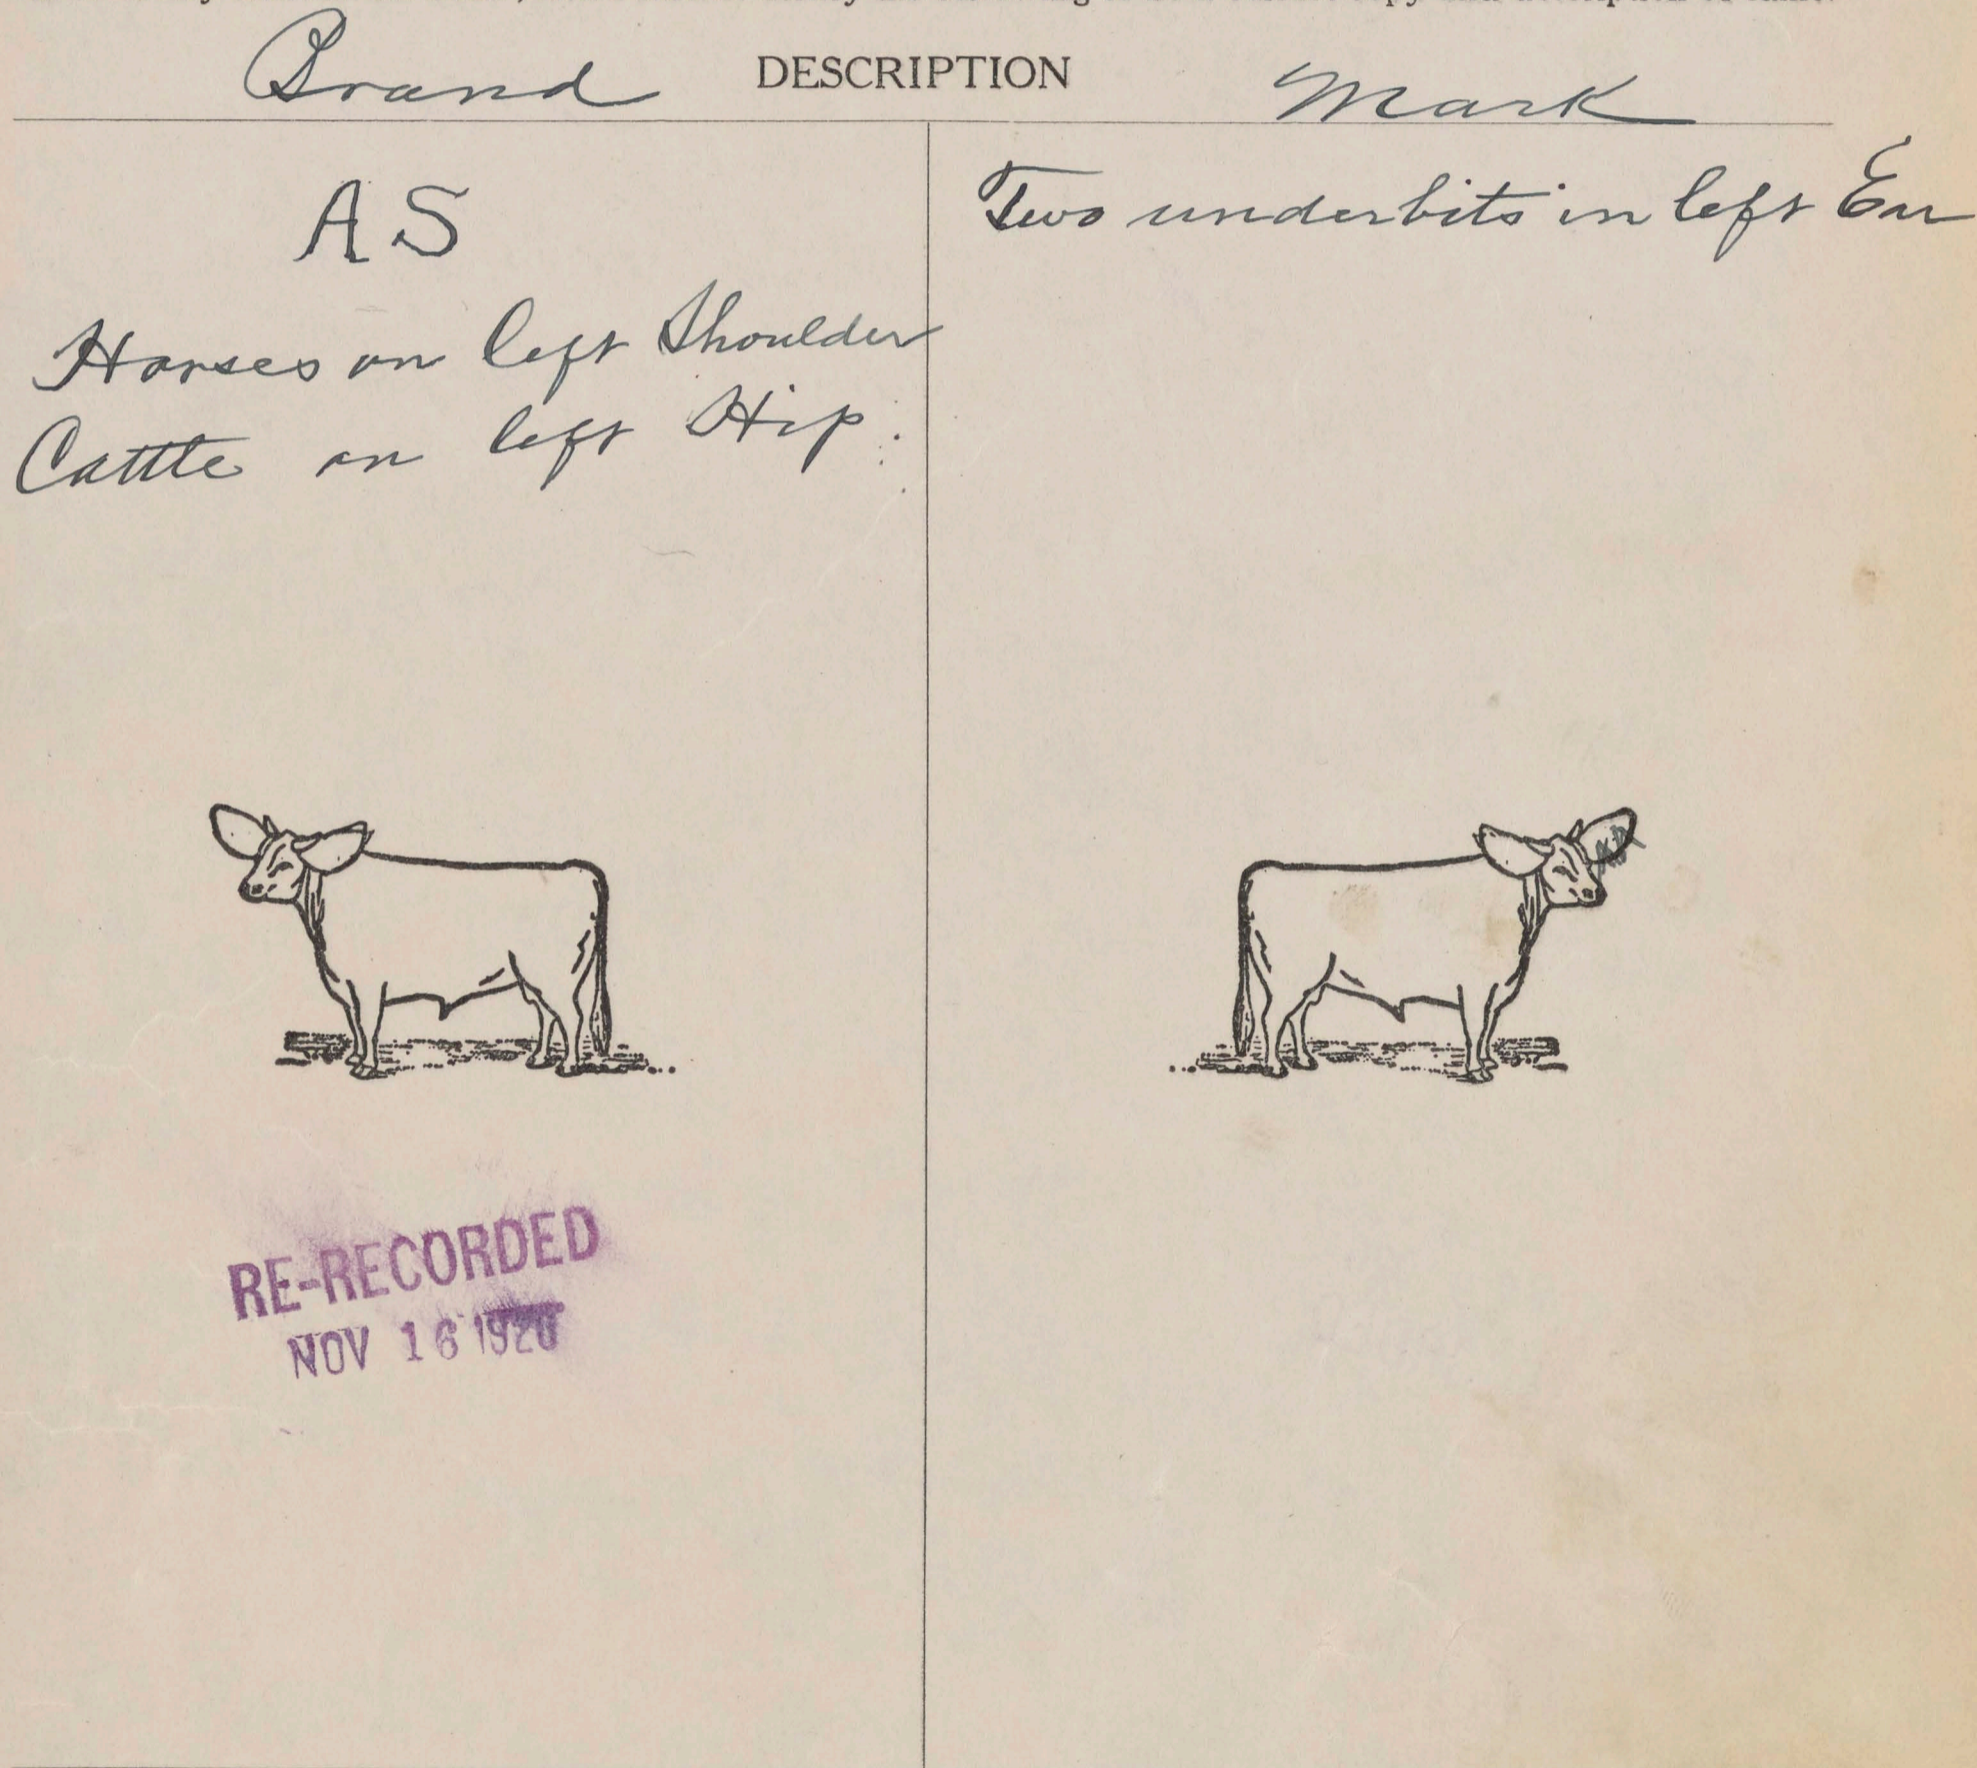 Brand DESCRIPTION Mark
A S
Horses on left Shoulder
Cattle on left Hip.
Two underbits in left Ear
RE-RECORDED
NOV 16 1920